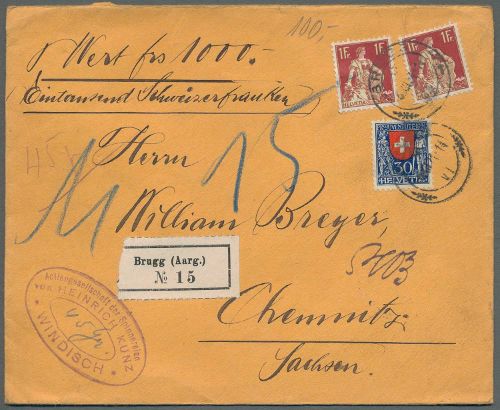 100,-
Wert frs 1000.-
(Eintausend Schweizerfranken)
1Fr. 1Fr.
HELVETIA
1Fr. 1Fr.
30
HELVETIA
VI
15
Herrn
William Breyer,
Brugg (Aarg.)
№ 15
Chemnitz
Sachsen.
Actiengesellschaft der Spinnereien
von HEINRICH KUNZ
45 gr.
* WINDISCH *